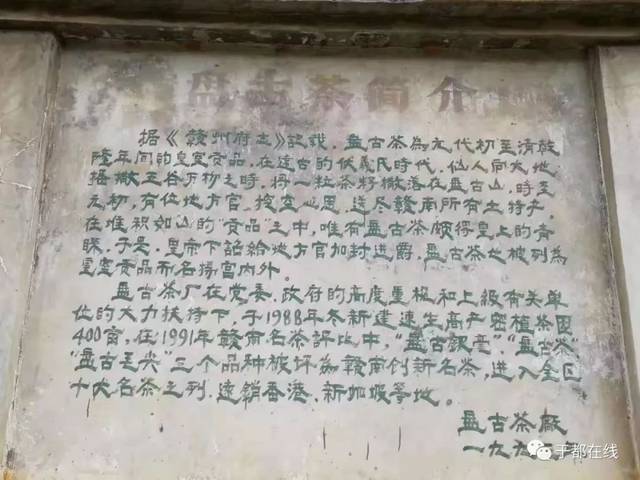 盘古茶简介
据《赣州府志》記説，盘古茶為元代初至清乾
隆年间的皇室貢品。在遠古的伏羲氏時代，仙人向大地
播撒五谷万物之時，将一粒茶籽撒落在盘古山，時至
元初，有位地方官，按查心思，送尽赣南所有土特产。
在堆积如山的"貢品"之中，唯有盘古茶颇得皇上的青
睐。于是，皇帝下詔給地方官加封进爵，盘古茶也被列為
皇室貢品而名揚宫内外。
盘古茶厂在党委、政府的高度重視和上級有关单
位的大力扶持下，于1988年冬新建速生高产密植茶园
400亩，在1991年赣南名茶評比中，"盘古銀毫"、"盘古茶"
"盘古毛尖"三个品种被评為赣南創新名茶，進入全区
十大名茶之列，遠銷香港、新加坡等地。
盘古茶廠
一九九
于都在线